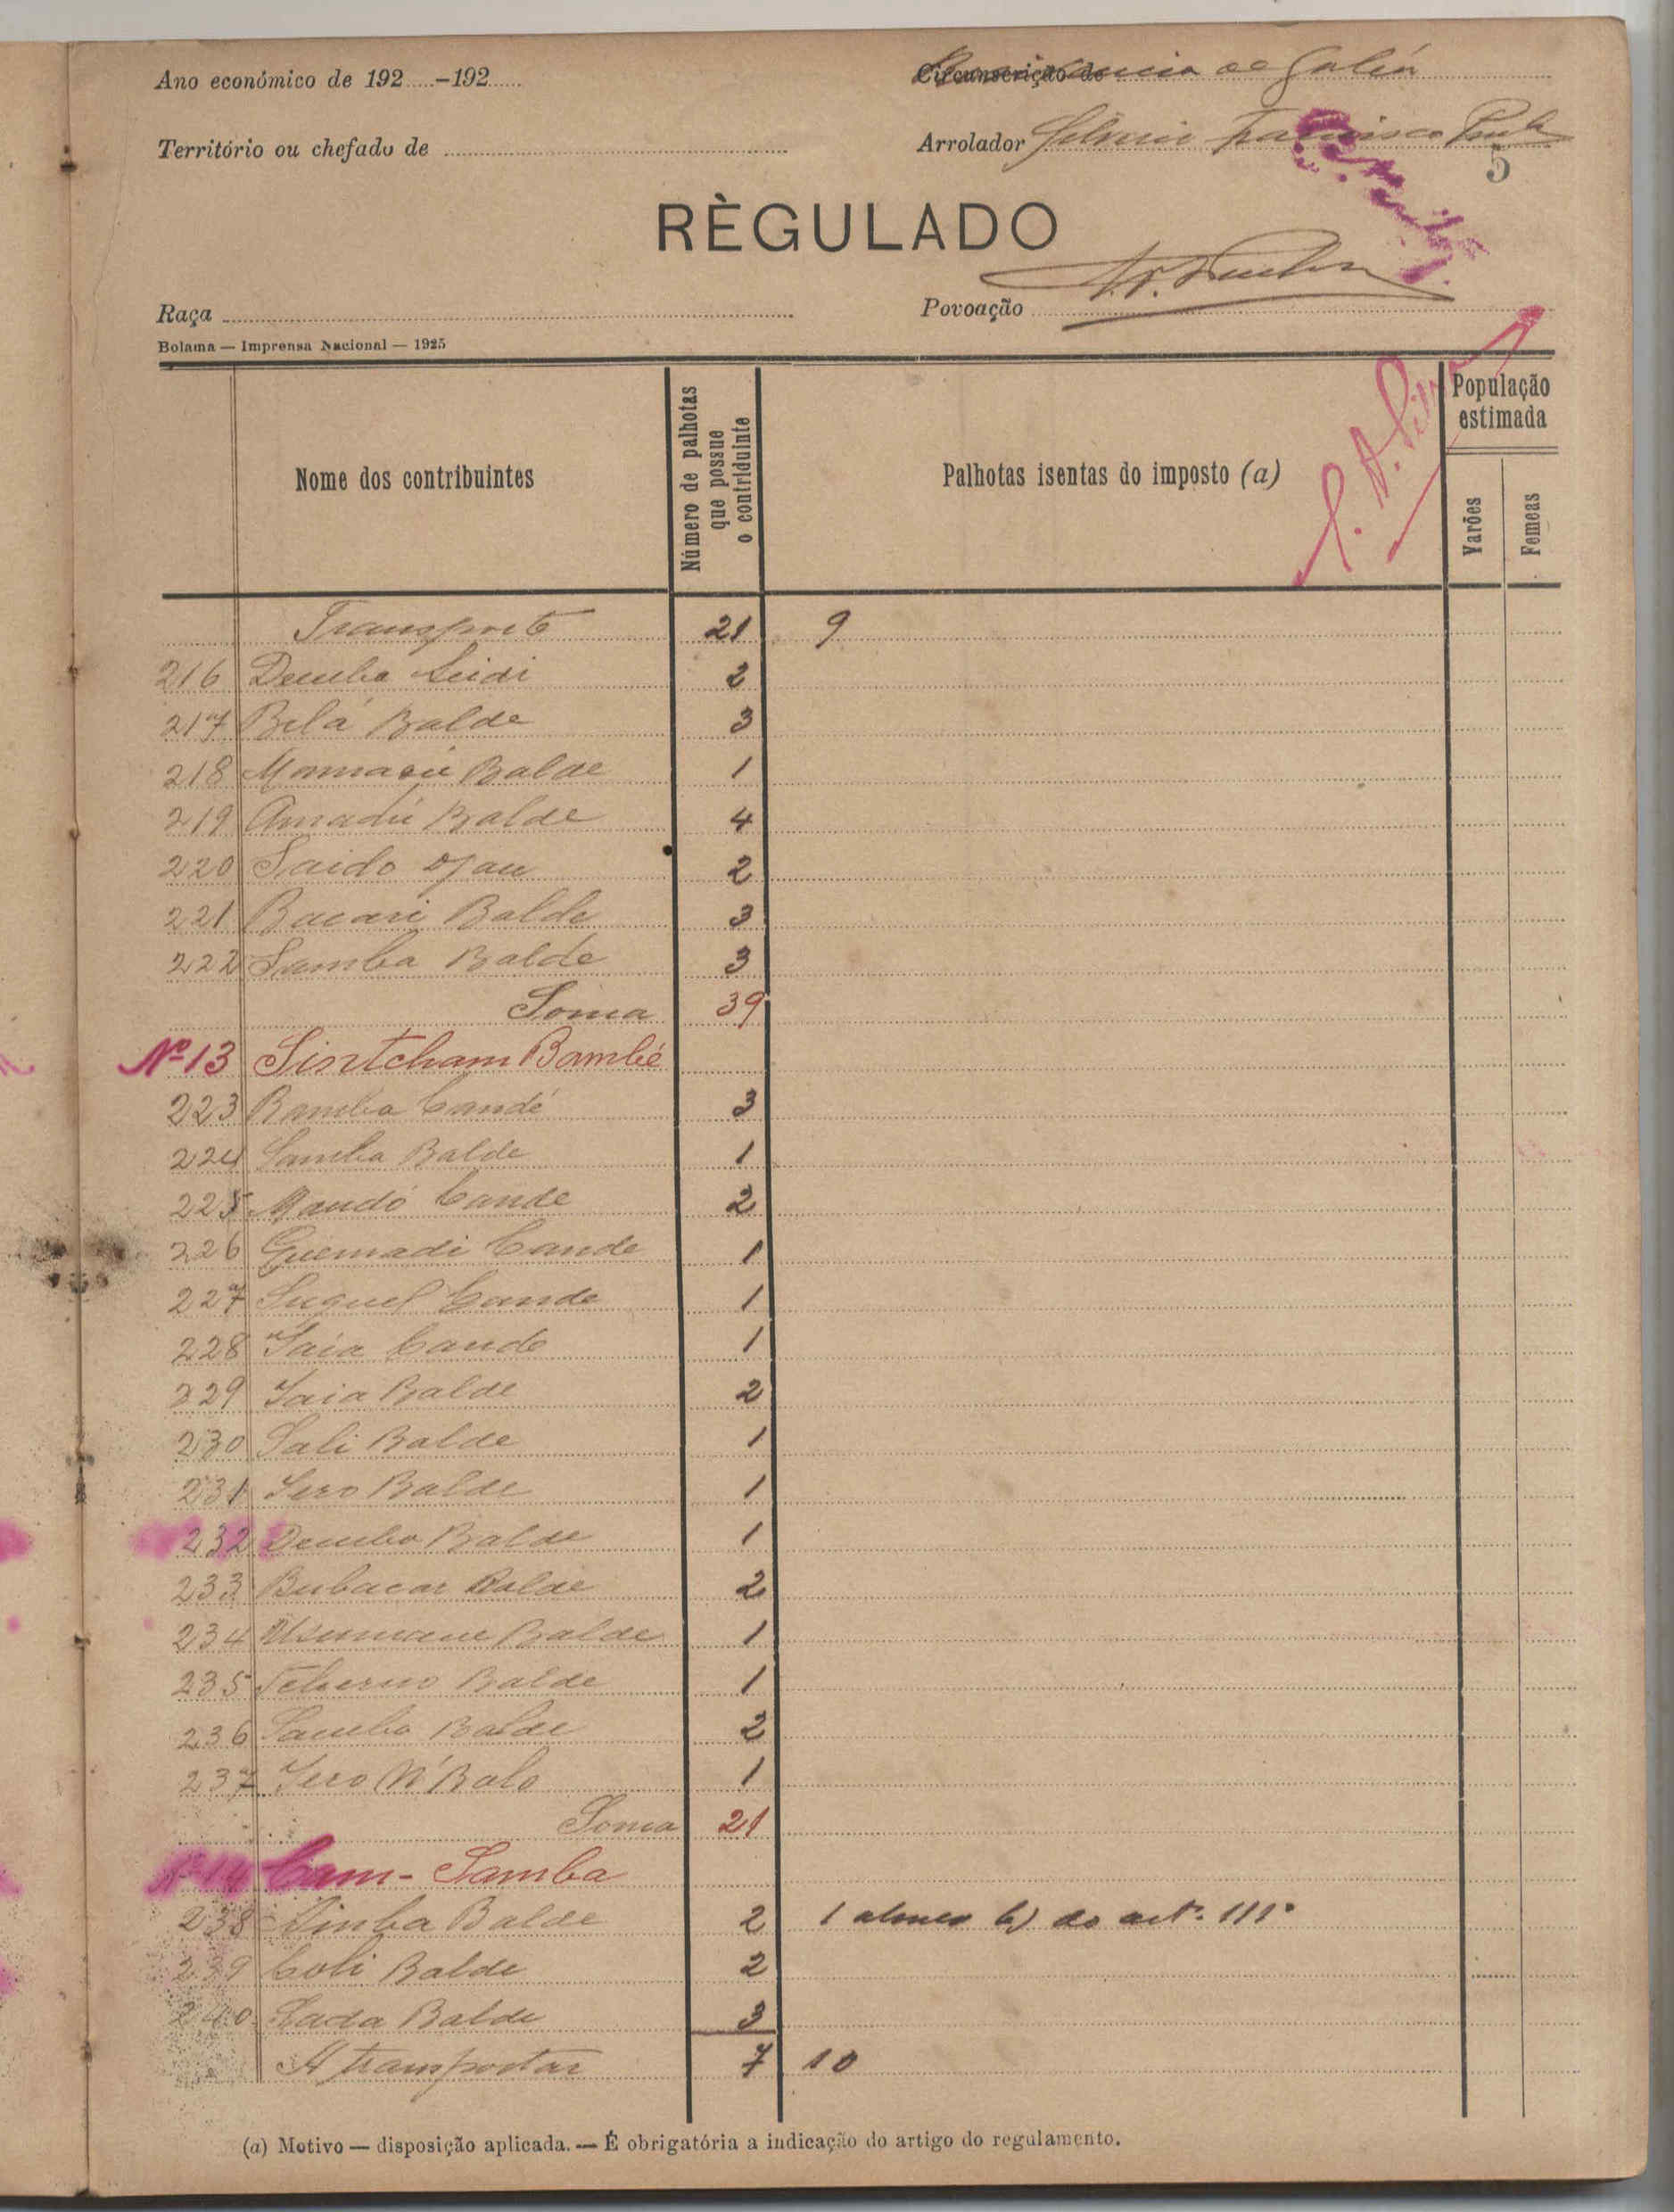 Ano económico de 192.....-192......
Circunscrição de
Território ou chefado de
Arrolador Francisco
5
RÈGULADO
Raça
Povoação
Bolama — Imprensa Nacional — 1925
Nome dos contribuintes
Número de palhotas que possue o contriduinte
Palhotas isentas do imposto (a)
População estimada
Varões
Femeas
Transporte 21 9
216 Demba Seidi 2
217 Belá Balde 3
218 Balde 1
219 Amadú Balde 4
220 Saido Djau 2
221 Bacari Balde 3
222 Samba Balde 3
Soma 39
Nº 13 Sintcham Bambé
223 Bamba Candé 3
224 Samba Balde 1
225 Cande 2
226 Guemadi Cande 1
227 Suguel Cande 1
228 Cande 1
229 Iaia Balde 2
230 Sali Balde 1
231 Balde 1
232 Demba Balde 1
233 Bubacar Balde 2
234 Usumane Balde 1
235 Tcherno Balde 1
236 Samba Balde 2
237 N'Balo 1
Soma 21
Nº 14 Cam-Samba
238 Balde 2 1 b) do artº. 111º
239 Coli Balde 2
240 Balde 3
A transportar 7 10
(a) Motivo — disposição aplicada. — É obrigatória a indicação do artigo do regulamento.